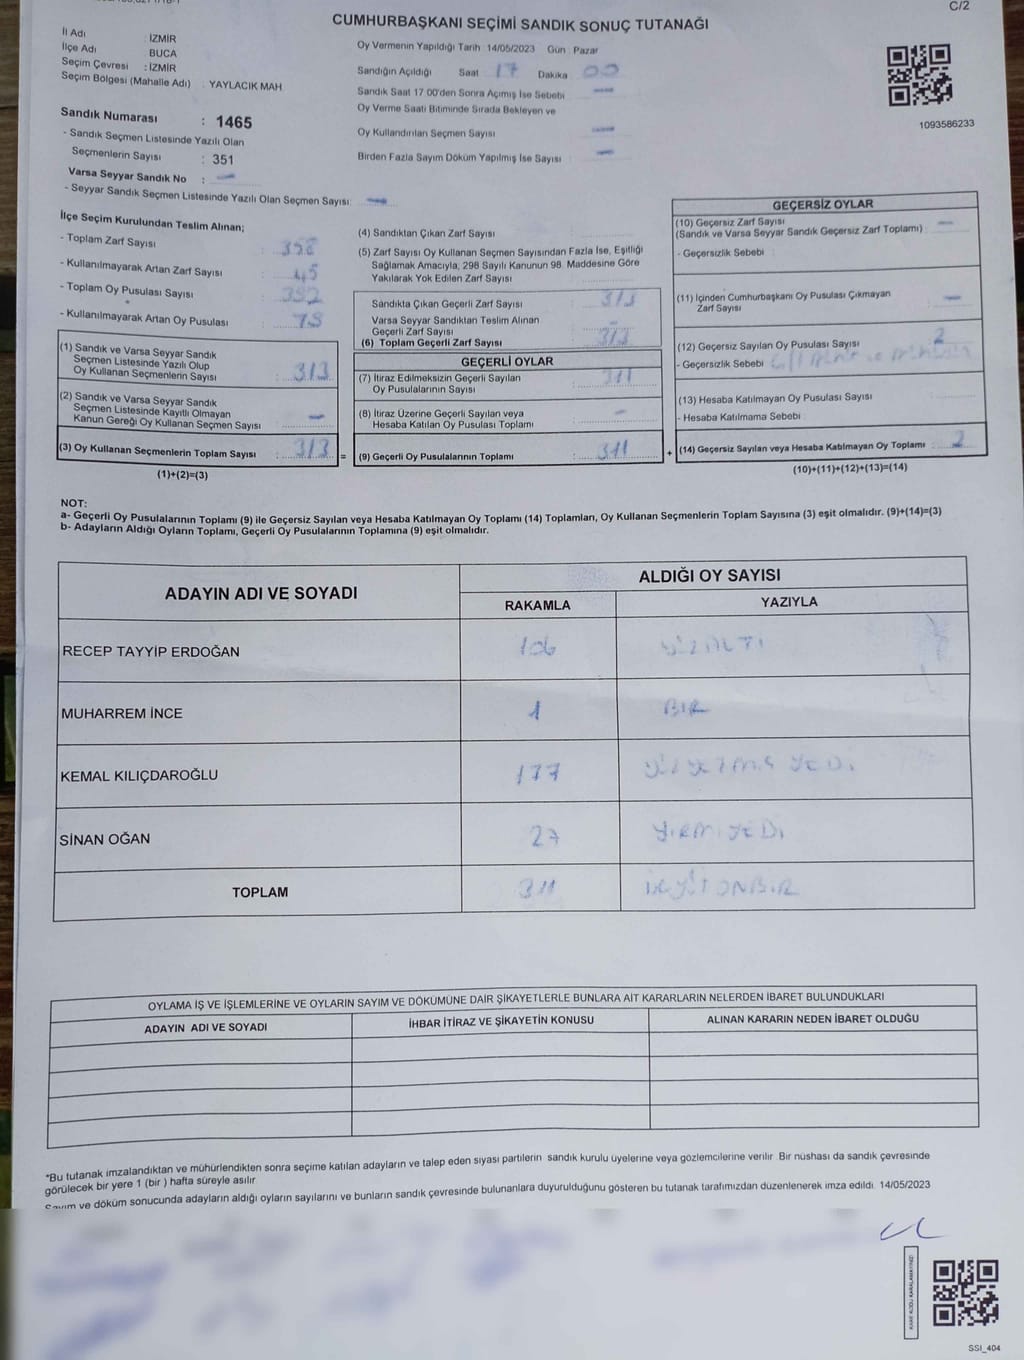 C/2
CUMHURBAŞKANI SEÇİMİ SANDIK SONUÇ TUTANAĞI
İl Adı : İZMİR
İlçe Adı : BUCA
Seçim Çevresi : İZMİR
Seçim Bölgesi (Mahalle Adı) : YAYLACIK MAH
Oy Vermenin Yapıldığı Tarih 14/05/2023 Gün : Pazar
Sandığın Açıldığı Saat 17 Dakika 00
Sandık Saat 17 00'den Sonra Açımış İse Sebebi —
Oy Verme Saati Bitiminde Sırada Bekleyen ve
Oy Kullandırılan Seçmen Sayısı —
Birden Fazla Sayım Döküm Yapılmış İse Sayısı —
1093586233
Sandık Numarası : 1465
- Sandık Seçmen Listesinde Yazılı Olan
Seçmenlerin Sayısı : 351
Varsa Seyyar Sandık No : —
- Seyyar Sandık Seçmen Listesinde Yazılı Olan Seçmen Sayısı: —
İlçe Seçim Kurulundan Teslim Alınan;
- Toplam Zarf Sayısı : 358
- Kullanılmayarak Artan Zarf Sayısı : 45
- Toplam Oy Pusulası Sayısı :
- Kullanılmayarak Artan Oy Pusulası :
(1) Sandık ve Varsa Seyyar Sandık
Seçmen Listesinde Yazılı Olup
Oy Kullanan Seçmenlerin Sayısı : 313
(2) Sandık ve Varsa Seyyar Sandık
Seçmen Listesinde Kayıtlı Olmayan
Kanun Gereği Oy Kullanan Seçmen Sayısı —
(3) Oy Kullanan Seçmenlerin Toplam Sayısı : 313 =
(1)+(2)=(3)
(4) Sandıktan Çıkan Zarf Sayısı
(5) Zarf Sayısı Oy Kullanan Seçmen Sayısından Fazla İse, Eşitliği
Sağlamak Amacıyla, 298 Sayılı Kanunun 98. Maddesine Göre
Yakılarak Yok Edilen Zarf Sayısı
Sandıkta Çıkan Geçerli Zarf Sayısı : 313
Varsa Seyyar Sandıktan Teslim Alınan
Geçerli Zarf Sayısı : —
(6) Toplam Geçerli Zarf Sayısı : 313
GEÇERLİ OYLAR
(7) İtiraz Edilmeksizin Geçerli Sayılan
Oy Pusulalarının Sayısı : 311
(8) İtiraz Üzerine Geçerli Sayılan veya
Hesaba Katılan Oy Pusulası Toplamı : —
(9) Geçerli Oy Pusulalarının Toplamı : 311 +
GEÇERSİZ OYLAR
(10) Geçersiz Zarf Sayısı
(Sandık ve Varsa Seyyar Sandık Geçersiz Zarf Toplamı) : —
- Geçersizlik Sebebi :
(11) İçinden Cumhurbaşkanı Oy Pusulası Çıkmayan
Zarf Sayısı : —
(12) Geçersiz Sayılan Oy Pusulası Sayısı : 2
- Geçersizlik Sebebi
(13) Hesaba Katılmayan Oy Pusulası Sayısı
- Hesaba Katılmama Sebebi
(14) Geçersiz Sayılan veya Hesaba Katılmayan Oy Toplamı : 2
(10)+(11)+(12)+(13)=(14)
NOT:
a- Geçerli Oy Pusulalarının Toplamı (9) ile Geçersiz Sayılan veya Hesaba Katılmayan Oy Toplamı (14) Toplamları, Oy Kullanan Seçmenlerin Toplam Sayısına (3) eşit olmalıdır. (9)+(14)=(3)
b- Adayların Aldığı Oyların Toplamı, Geçerli Oy Pusulalarının Toplamına (9) eşit olmalıdır.
ADAYIN ADI VE SOYADI ALDIĞI OY SAYISI
RAKAMLA YAZIYLA
RECEP TAYYİP ERDOĞAN 106 YÜZALTI
MUHARREM İNCE 1 BİR
KEMAL KILIÇDAROĞLU 177 YÜZ YETMİŞ YEDİ
SİNAN OĞAN 27 YİRMİ YEDİ
TOPLAM 311 ÜÇYÜZONBİR
OYLAMA İŞ VE İŞLEMLERİNE VE OYLARIN SAYIM VE DÖKÜMÜNE DAİR ŞİKAYETLERLE BUNLARA AİT KARARLARIN NELERDEN İBARET BULUNDUKLARI
ADAYIN ADI VE SOYADI İHBAR İTİRAZ VE ŞİKAYETİN KONUSU ALINAN KARARIN NEDEN İBARET OLDUĞU
*Bu tutanak imzalandıktan ve mühürlendikten sonra seçime katılan adayların ve talep eden siyasi partilerin sandık kurulu üyelerine veya gözlemcilerine verilir Bir nüshası da sandık çevresinde
görülecek bir yere 1 (bir ) hafta süreyle asılır
Sayım ve döküm sonucunda adayların aldığı oyların sayılarını ve bunların sandık çevresinde bulunanlara duyurulduğunu gösteren bu tutanak tarafımızdan düzenlenerek imza edildi. 14/05/2023
SSI_404